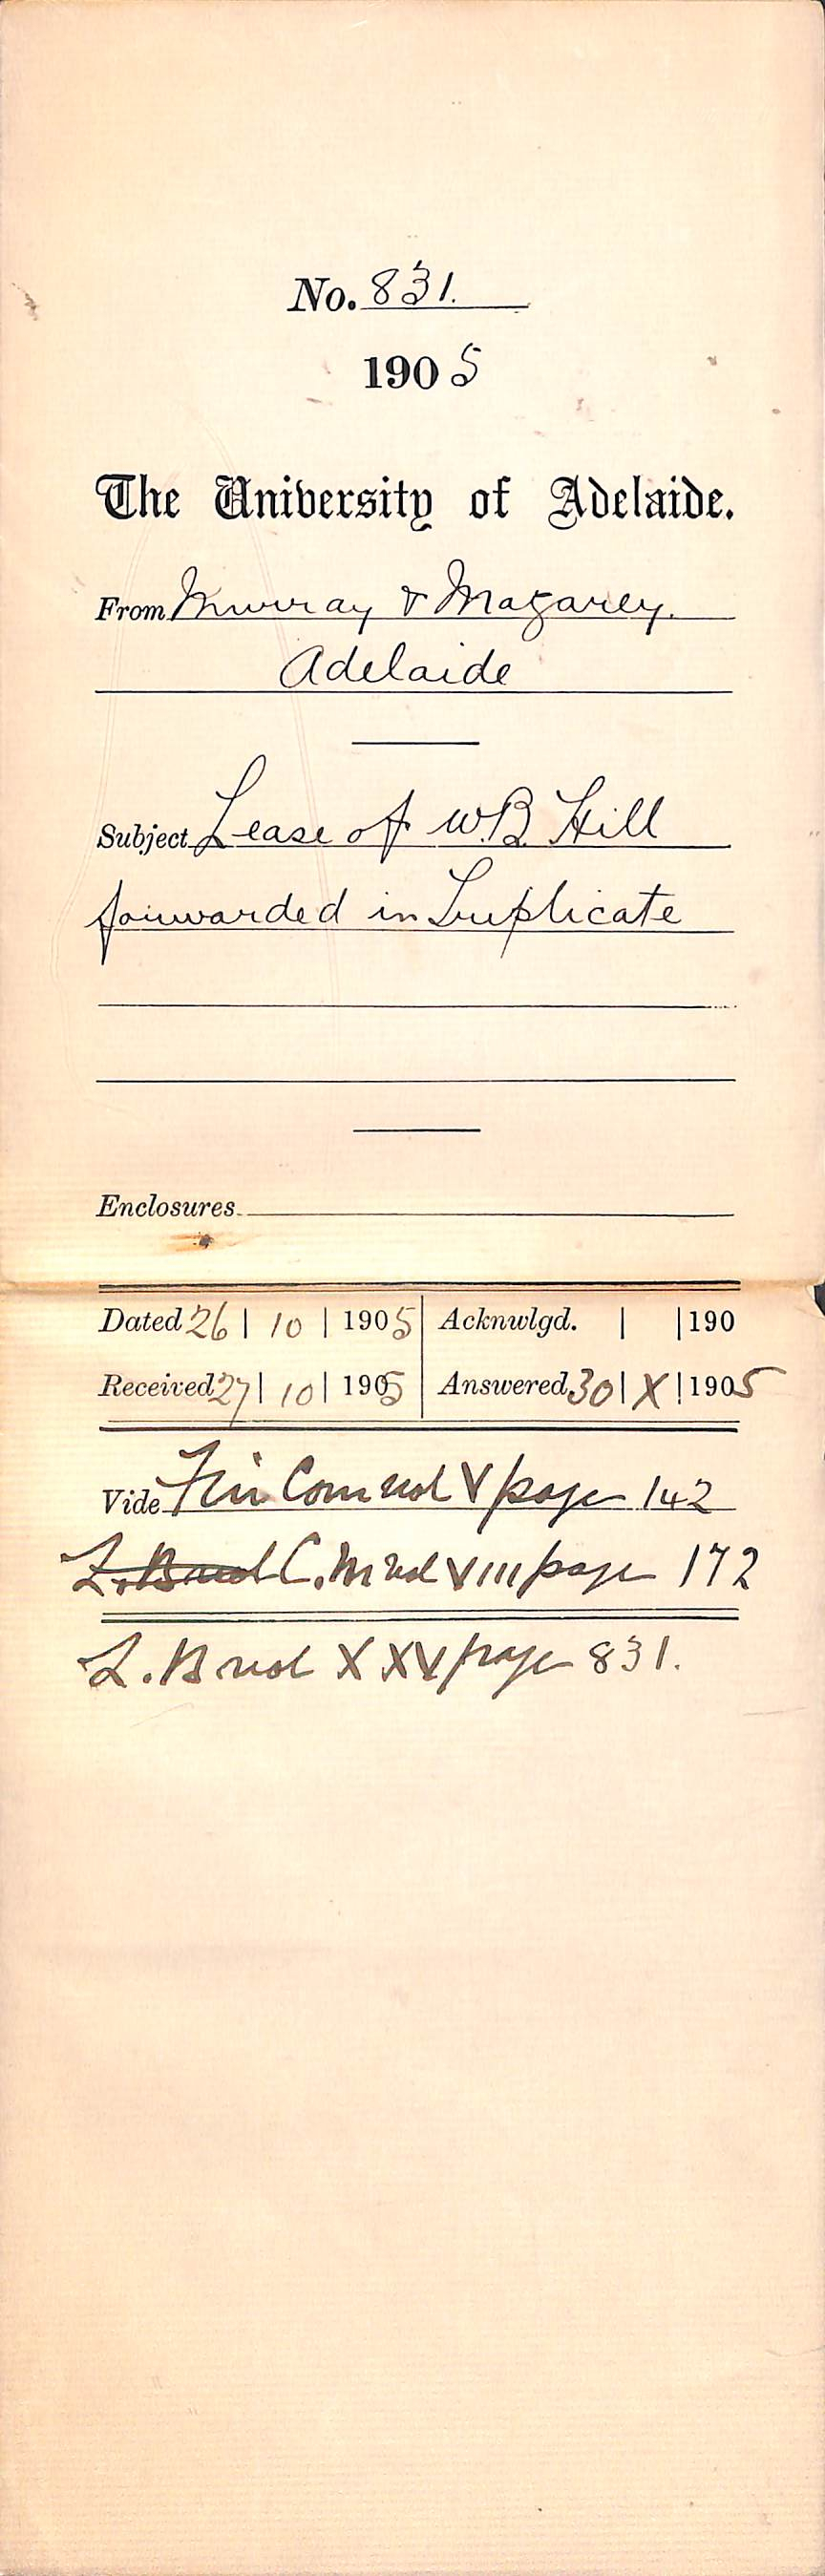 No. 831.
1905
The University of Adelaide.
From Murray & Magarey.
Adelaide
Subject Lease of W.B. Hill
forwarded in Duplicate
Enclosures
Dated 26 | 10 | 1905 Acknwlgd. | | 190
Received 27 | 10 | 1905 Answered 30 | X | 1905
Vide Fin Com vol V page 142
L. B vol C. M vol VIII page 172
L. B vol XXV page 831.